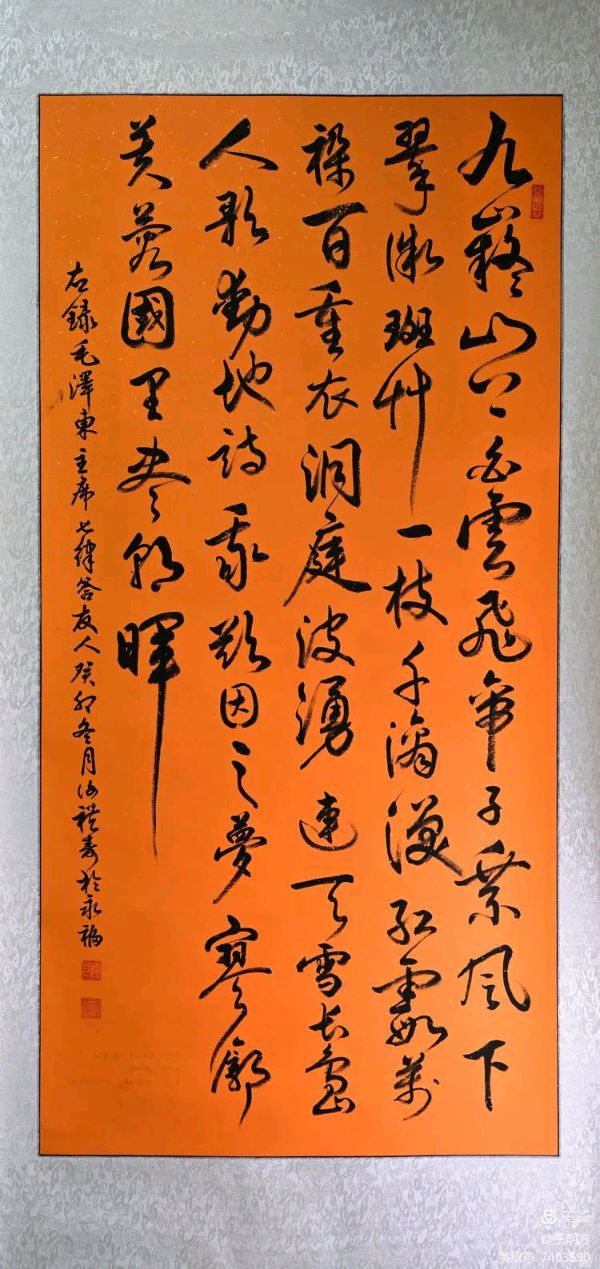 九嶷山上白雲飛帝子乘風下
翠微斑竹一枝千滴淚紅霞萬
百重衣洞庭波湧連天雪長島
人歌動地詩我欲因之夢寥廓
芙蓉國里盡朝暉
右錄毛澤東主席七律答友人癸卯冬月禮壽於永福
美篇
美篇号: 7403590